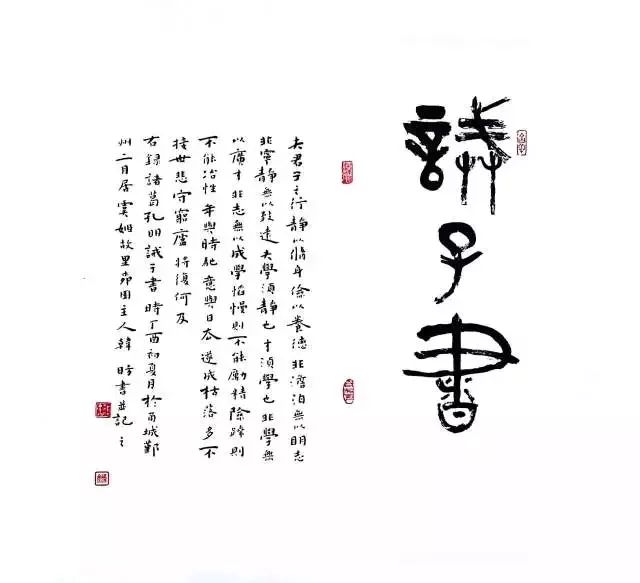 誡子書
夫君子之行静以脩身儉以養德非澹泊無以明志
非寧静無以致遠夫學須静也才須學也非學無
以廣才非志無以成學慆慢則不能勵精險躁則
不能冶性年與時馳意與日去遂成枯落多不
接世悲守窮廬將復何及
右録諸葛孔明誡子書時丁酉初夏月於城鄞
州二月居虞姚故里園主人韓書並記之